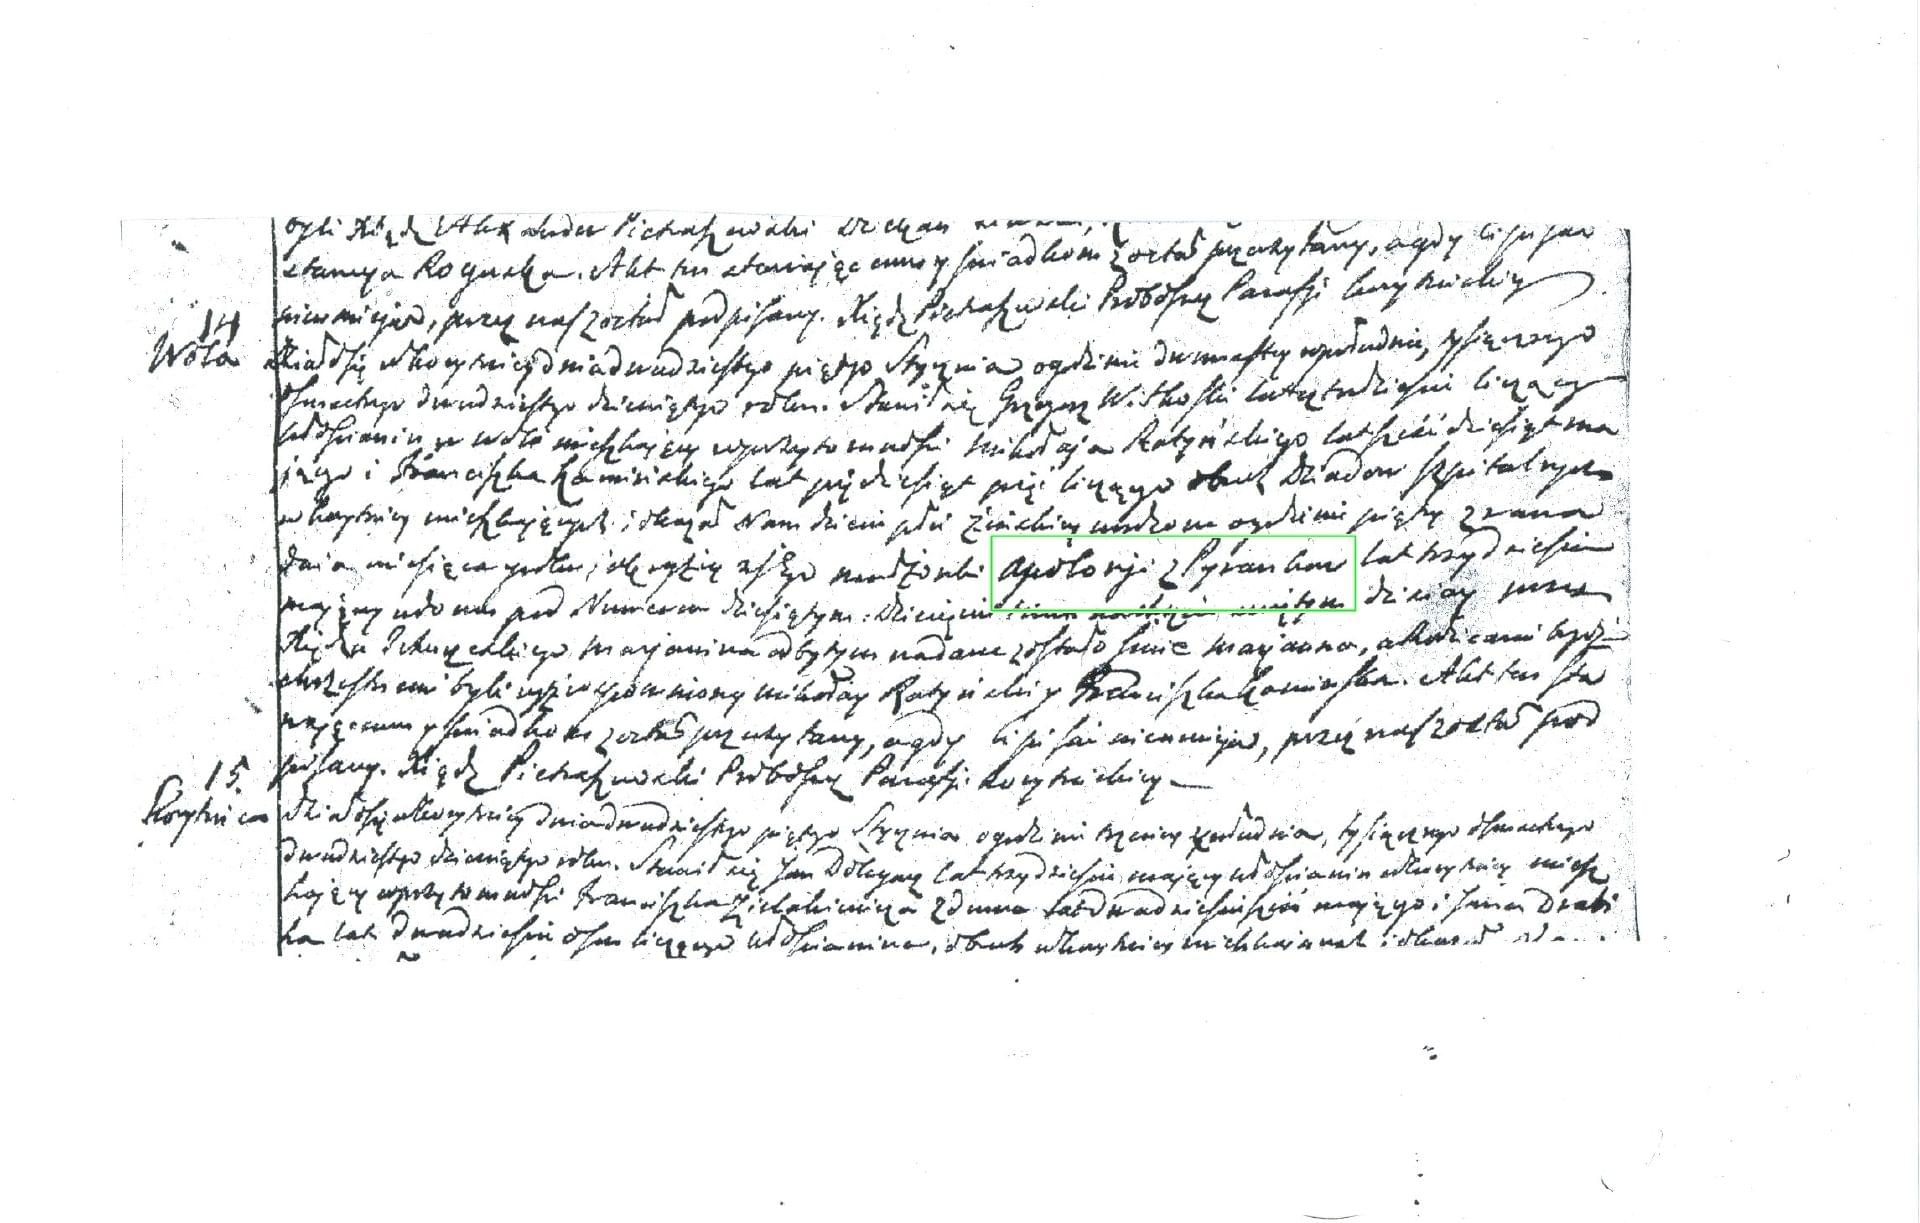 byli Xiądz Alexander Pietraszewski Dziekan
Roguska. Akt ten stawiającemu y świadkom został przeczytany, a gdy
nieumieją, przez nas został podpisany. Xiądz Pietraszewski Proboszcz Parafji Korytnickiey
14
Wola
Działo się w Korytnicy dnia dwudziestego piątego Stycznia o godzinie dwunasty w południe, tysiącznego
Osmsetnego dwudziestego dziewiątego roku. Stawił się Grzegorz Witkoski lat czterdzieści liczący
Włościanin w Woli mieszkaiący w przytomności Mikołaja Ratyńskiego lat sześćdziesiąt ma
jącego i Franciszka Kamińskiego lat pięćdziesiąt pięć liczącego obuch Dziadow szpitalnych
w Korytnicy mieszkaiących; i okazał Nam dziecie płci żeńskiey urodzone o godzinie piąty z rana
dnia miesiąca y roku; z iego małżonki Apolonji z Pyrauskow lat trzydzieści
maiący w domu pod Numerem dziesiątym: Dziecięciu temu na chrzcie świętym dzisiay przez
Xiędza odbytym nadane zostało Imie Maryanna, a Rodzicami
chrzestnemi byli wyżey wspomniony Mikołay Ratyński y Franciszka Kamińska. Akt ten sta
wającemu y świadkom został przeczytany, a gdy pisać nieumieją, przez nas został pod
pisany. Xiądz Pietraszewski Proboszcz Parafji Korytnickiey
15
Korytnica
Działo się w Korytnicy dnia dwudziestego piątego Stycznia o godzinie trzeciey z południa, tysiącznego Osmsetnego
dwudziestego dziewiątego roku. Stawił się Jan Dołęgow lat trzydzieści maiący Włościanin w Korytnicy miesz
kaiący w przytomności Franciszka lat dwadzieścia sześć maiącego i Jana Drabi
ka lat dwadzieścia osm liczącego Włościanina, obuch w Korytnicy mieszkaiących i okazał